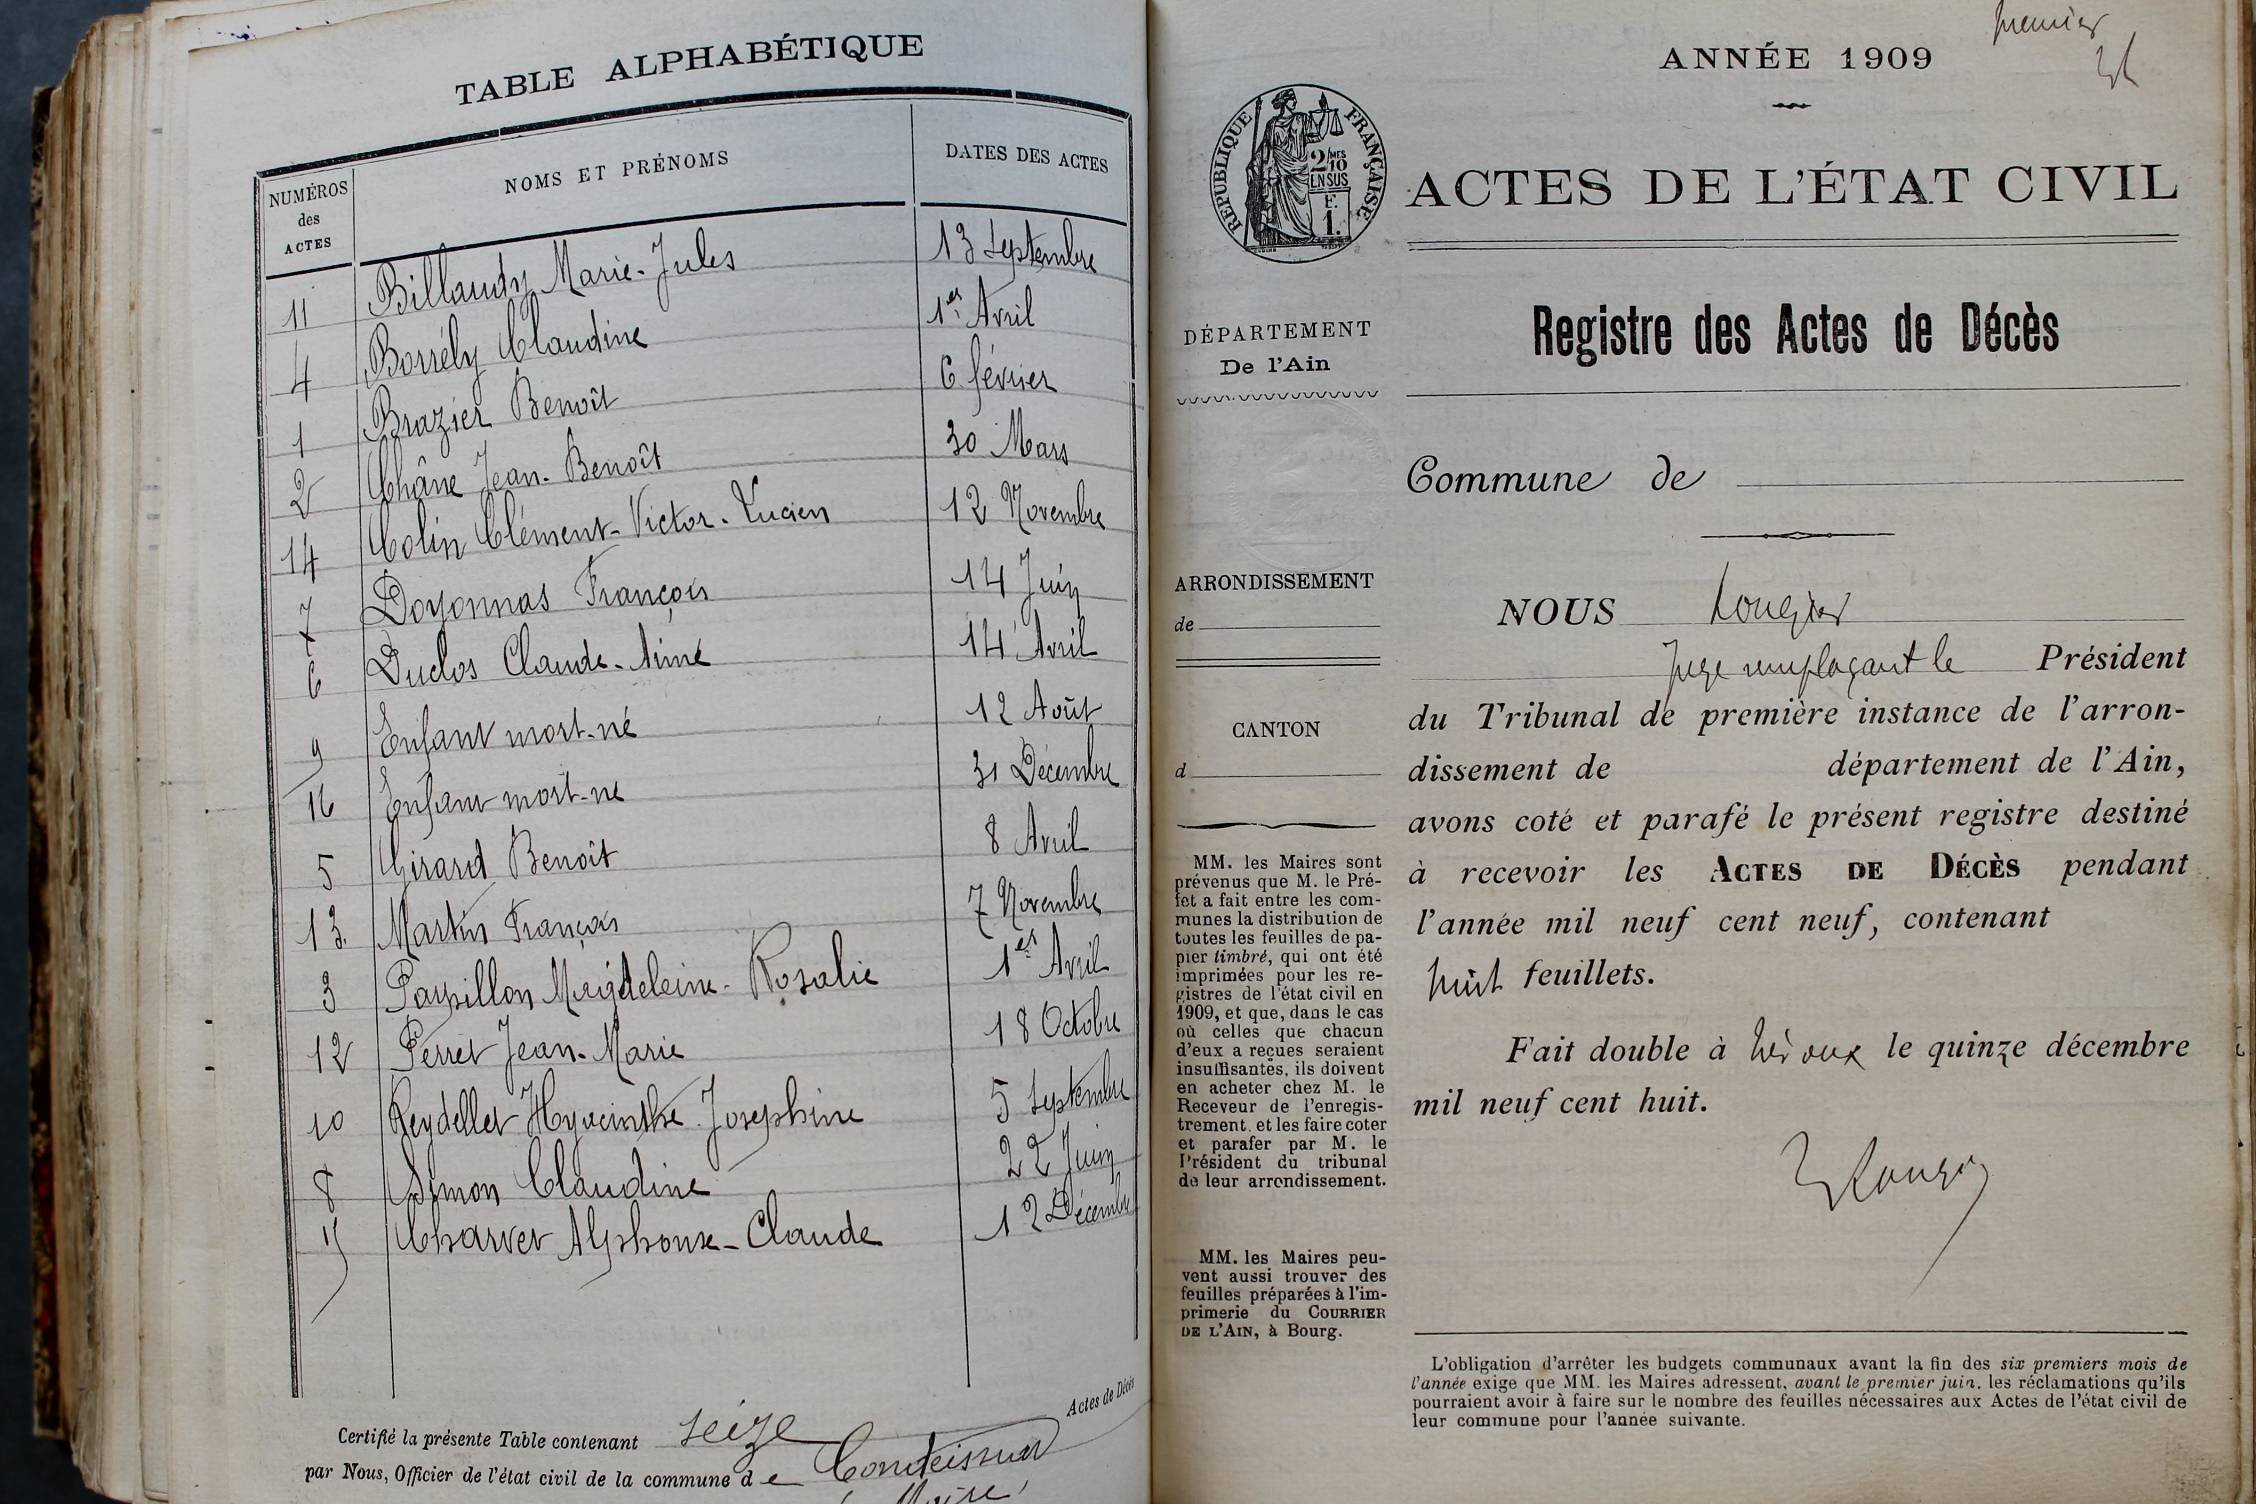 TABLE ALPHABÉTIQUE
NUMÉROS des ACTES
NOMS ET PRÉNOMS
DATES DES ACTES
11 Billaudy Marie-Jules 13 Septembre
4 Borrély Claudine 1er Avril
1 Brazier Benoît 6 février
2 Châne Jean-Benoît 30 Mars
14 Colin Clément-Victor-Lucien 12 Novembre
7 Doyonnas François 14 Juin
6 Duclos Claude-Aimé 14 Avril
9 Enfant mort-né 12 Août
16 Enfant mort-né 31 Décembre
5 Girard Benoît 8 Avril
13 Martin François 7 Novembre
3 Papillon Magdeleine-Rosalie 1er Avril
12 Perret Jean-Marie 18 Octobre
10 Reydellet Hyacinthe Josephine 5 Septembre
8 Simon Claudine 22 Juin
15 Charvet Alphonse-Claude 12 Décembre
Certifié la présente Table contenant seize Actes de Décès
par Nous, Officier de l'état civil de la commune de Condeissiat
Maire
premier
ANNÉE 1909
RÉPUBLIQUE FRANÇAISE
2/10 MES
EN SUS
F. 1.
ACTES DE L'ÉTAT CIVIL
DÉPARTEMENT
De l'Ain
Registre des Actes de Décès
Commune de
ARRONDISSEMENT
de
CANTON
d
MM. les Maires sont
prévenus que M. le Pré-
fet a fait entre les com-
munes la distribution de
toutes les feuilles de pa-
pier timbré, qui ont été
imprimées pour les re-
gistres de l'état civil en
1909, et que, dans le cas
où celles que chacun
d'eux a reçues seraient
insuffisantes, ils doivent
en acheter chez M. le
Receveur de l'enregis-
trement, et les faire coter
et parafer par M. le
Président du tribunal
de leur arrondissement.
MM. les Maires peu-
vent aussi trouver des
feuilles préparées à l'im-
primerie du COURRIER
DE L'AIN, à Bourg.
NOUS Rougier
Juge remplaçant le Président
du Tribunal de première instance de l'arron-
dissement de département de l'Ain,
avons coté et parafé le présent registre destiné
à recevoir les ACTES DE DÉCÈS pendant
l'année mil neuf cent neuf, contenant
huit feuillets.
Fait double à Trévoux le quinze décembre
mil neuf cent huit.
L'obligation d'arrêter les budgets communaux avant la fin des six premiers mois de
l'année exige que MM. les Maires adressent, avant le premier juin, les réclamations qu'ils
pourraient avoir à faire sur le nombre des feuilles nécessaires aux Actes de l'état civil de
leur commune pour l'année suivante.